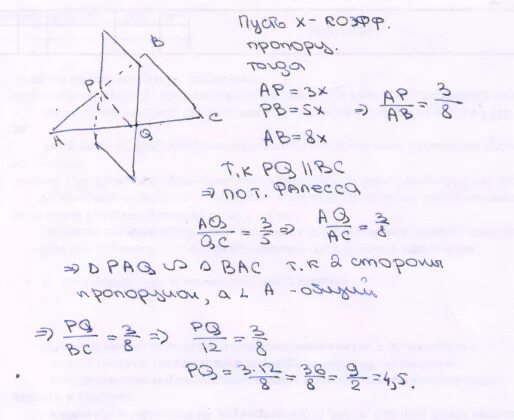 Пусть x - коэфф.
пропорц.
тогда
AP = 3x
PB = 5x ⇒ AP/AB = 3/8
AB = 8x
т.к PQ || BC
⇒ по т. Фалесса
AQ/QC = 3/5 ⇒ AQ/AC = 3/8
⇒ Δ PAQ ∽ Δ BAC т.к 2 стороны
пропорцион, а ∠ A - общий
⇒ PQ/BC = 3/8 ⇒ PQ/12 = 3/8
PQ = 3·12/8 = 36/8 = 9/2 = 4,5.
B
P
A
Q
C